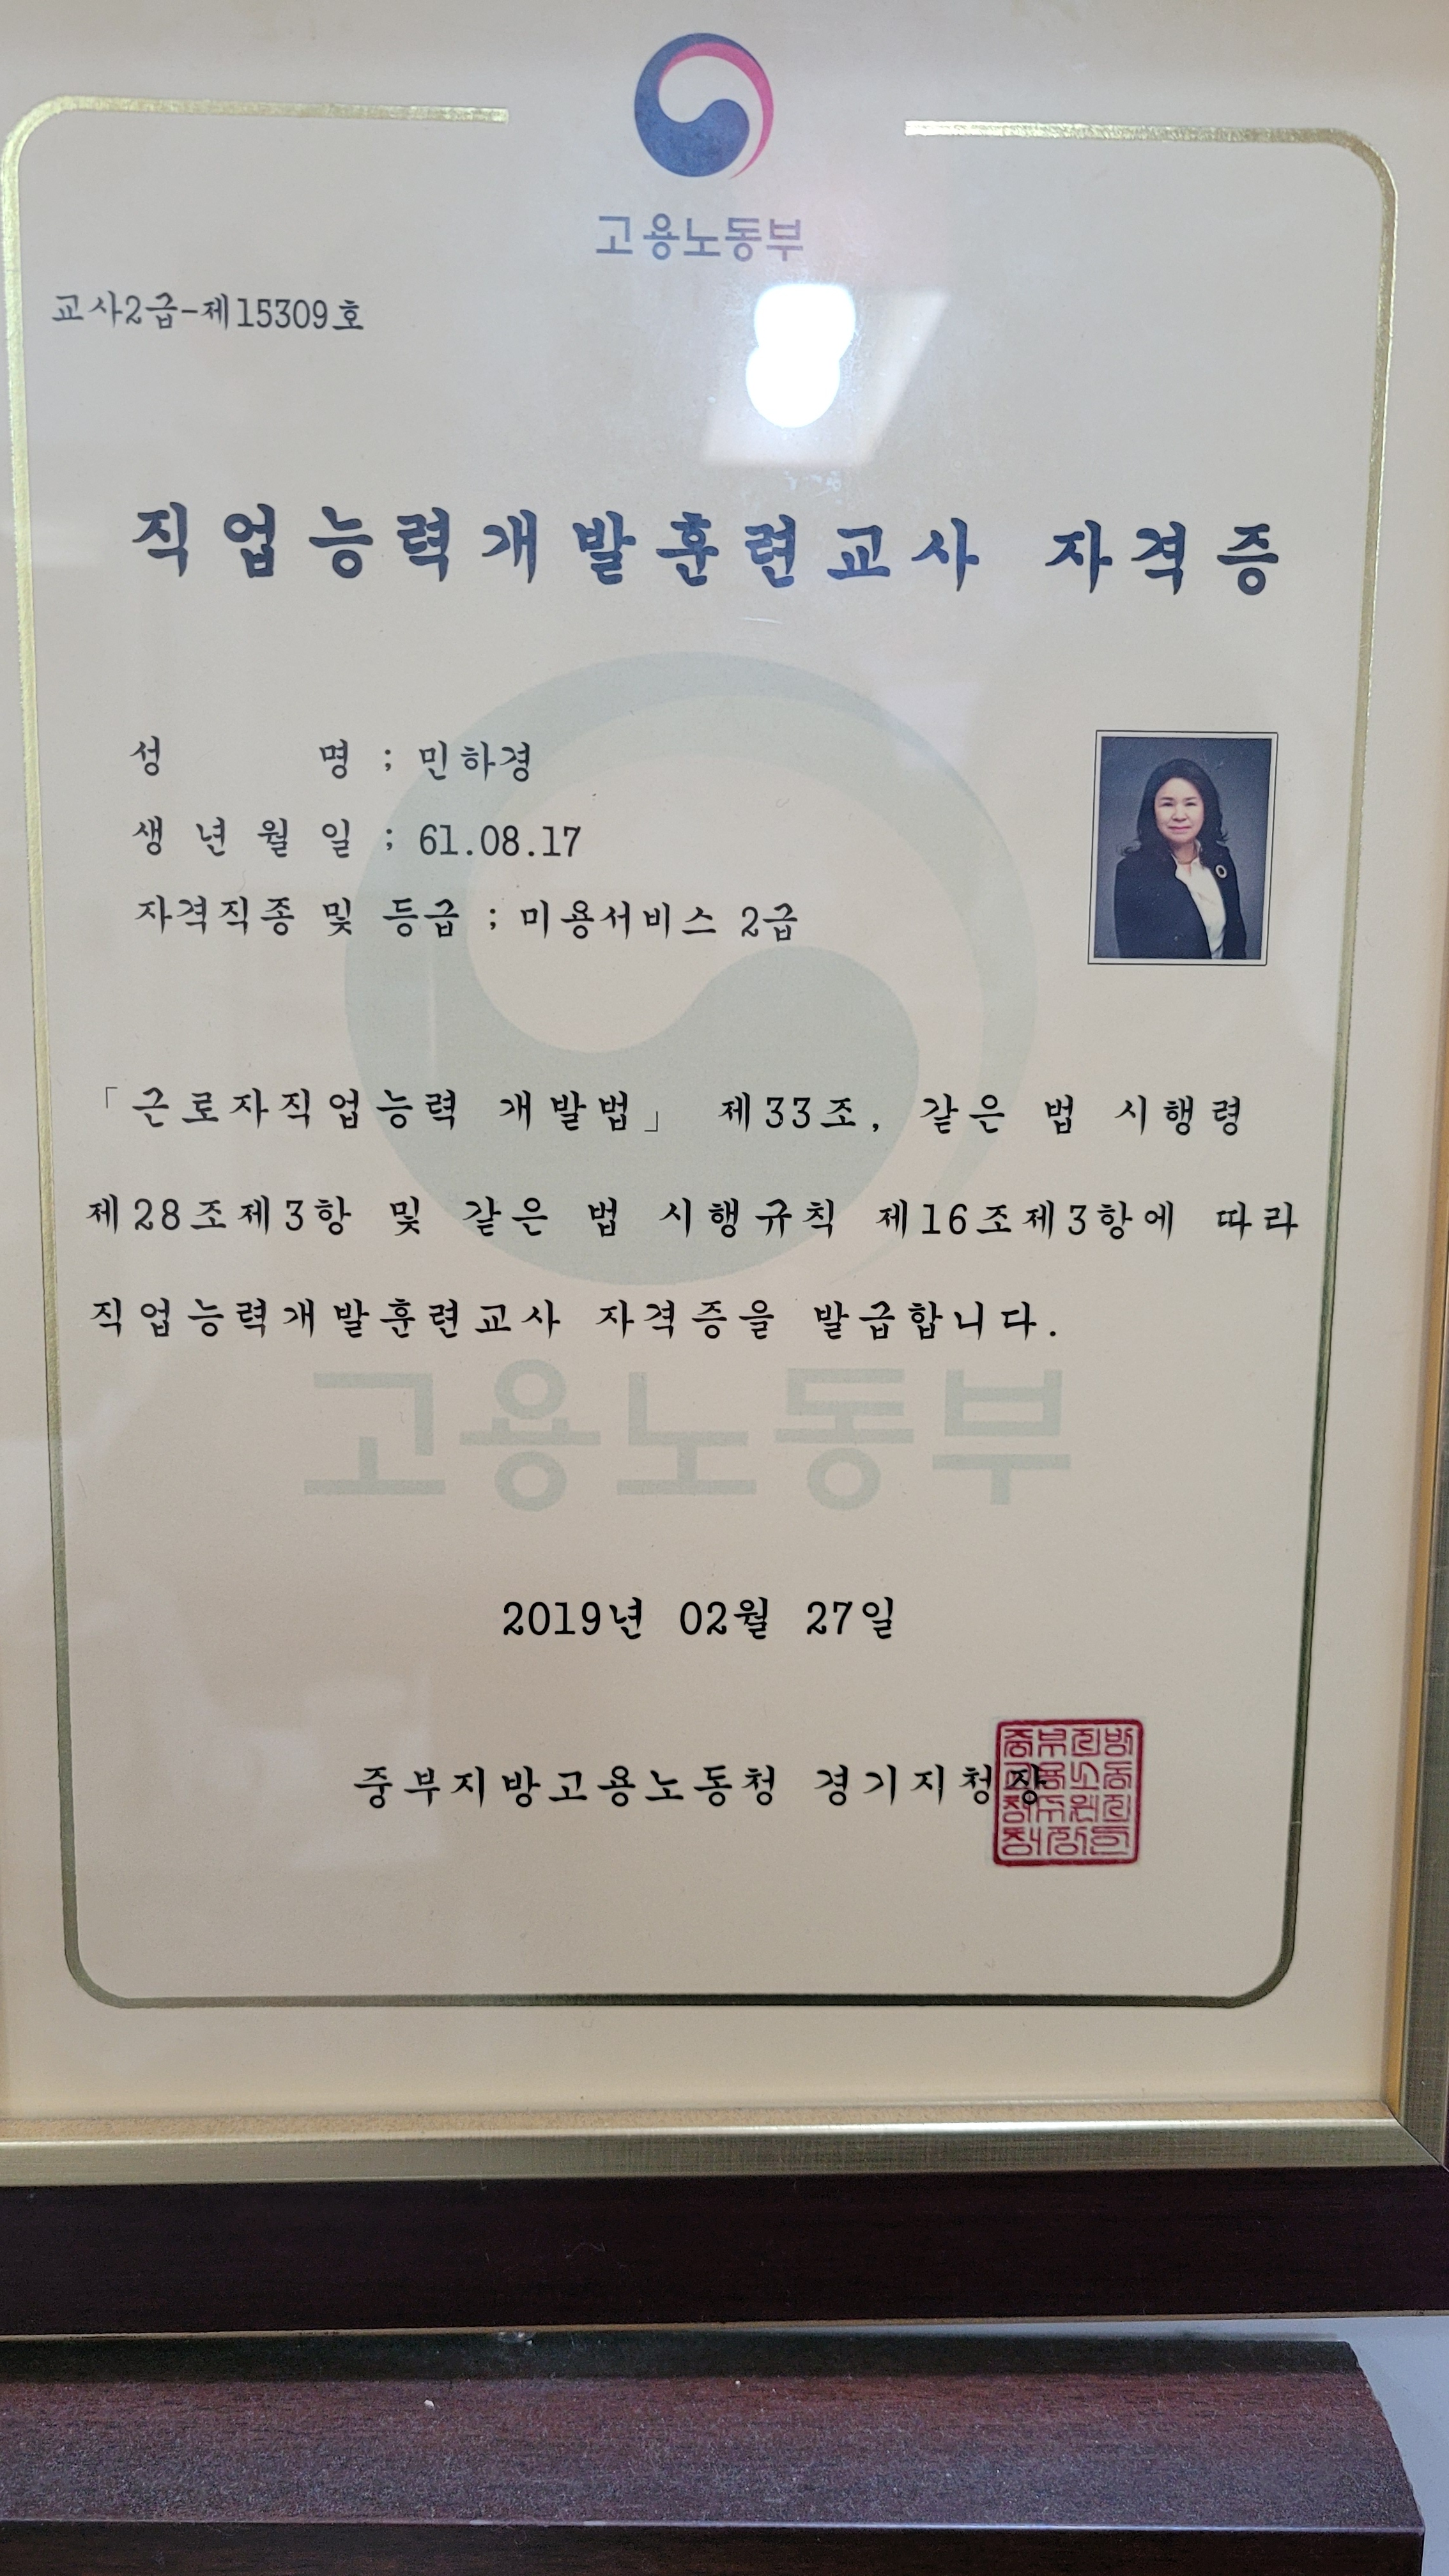 고용노동부
교사2급-제15309호
직업능력개발훈련교사 자격증
성 명 ; 민하경
생 년 월 일 ; 61.08.17
자격직종 및 등급 ; 미용서비스 2급
「근로자직업능력 개발법」 제33조, 같은 법 시행령
제28조제3항 및 같은 법 시행규칙 제16조제3항에 따라
직업능력개발훈련교사 자격증을 발급합니다.
고용노동부
2019년 02월 27일
중부지방고용노동청 경기지청장